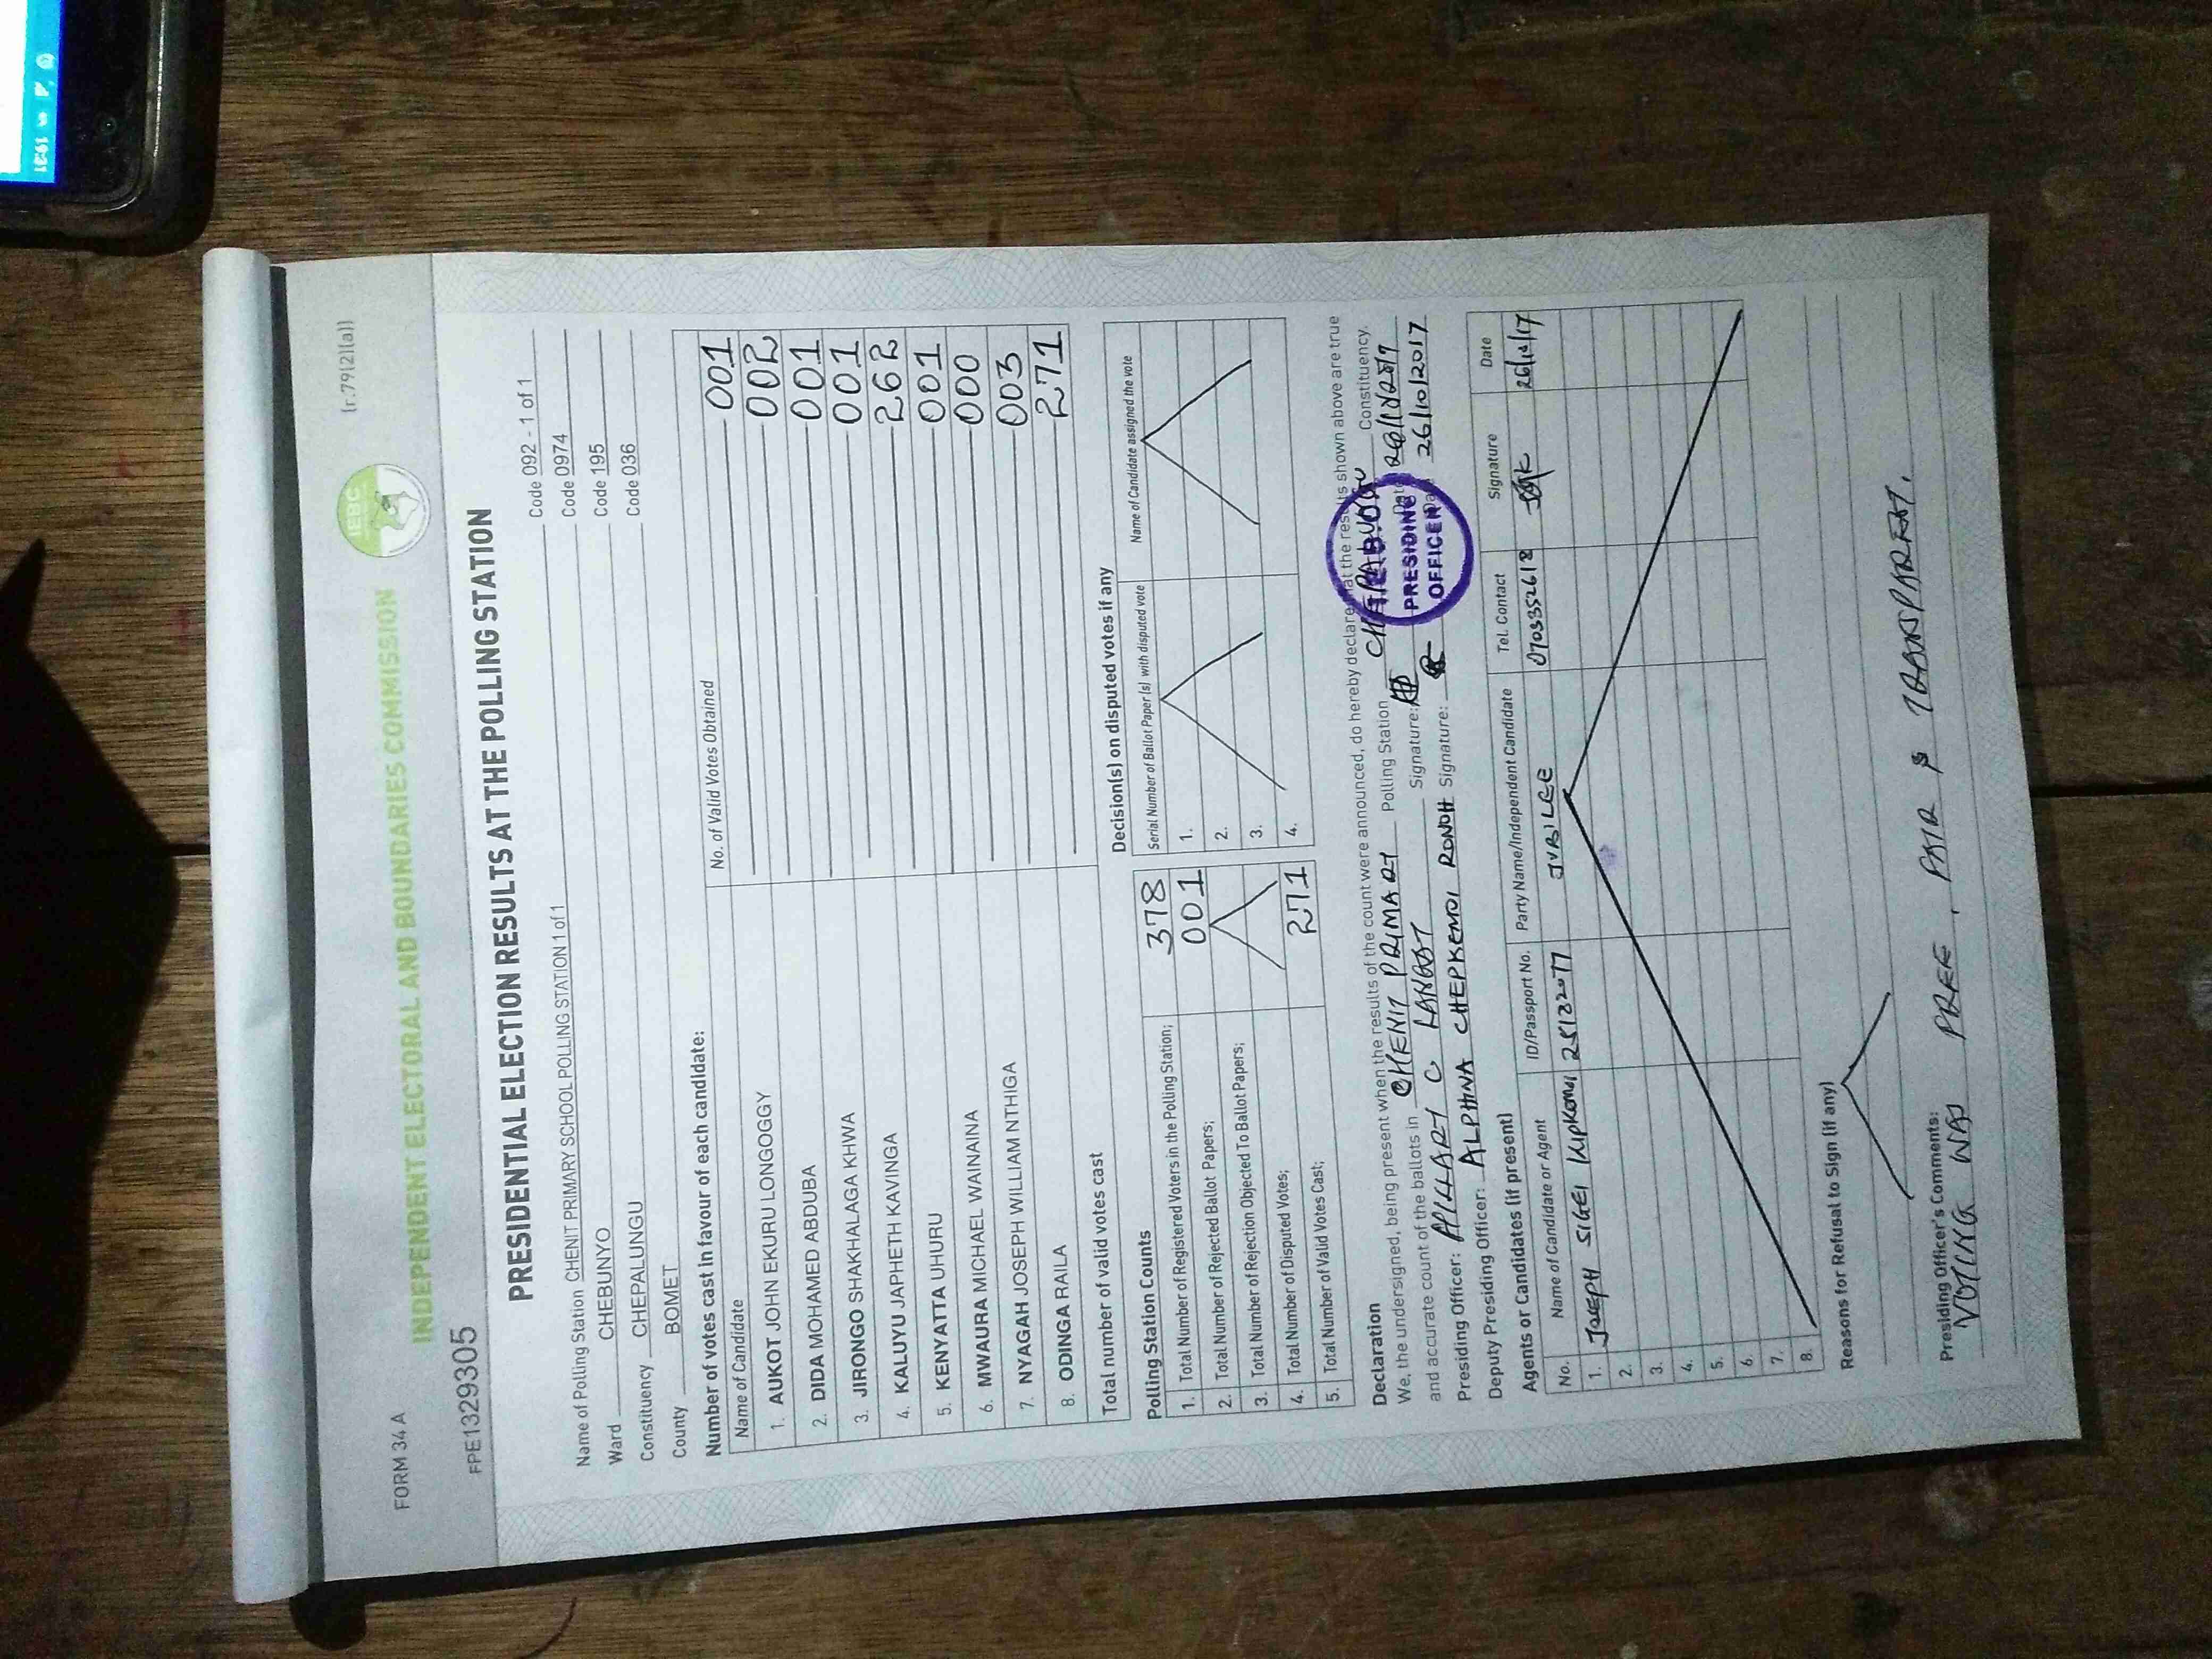 19:31
FORM 34 A
(r.79(2)(a))
IEBC
INDEPENDENT ELECTORAL AND BOUNDARIES COMMISSION
FPE1329305
PRESIDENTIAL ELECTION RESULTS AT THE POLLING STATION
Name of Polling Station CHENIT PRIMARY SCHOOL POLLING STATION 1 of 1 Code 092 - 1 of 1
Ward CHEBUNYO Code 0974
Constituency CHEPALUNGU Code 195
County BOMET Code 036
Number of votes cast in favour of each candidate:
Name of Candidate No. of Valid Votes Obtained
1. AUKOT JOHN EKURU LONGOGGY 001
2. DIDA MOHAMED ABDUBA 002
3. JIRONGO SHAKHALAGA KHWA 001
4. KALUYU JAPHETH KAVINGA 001
5. KENYATTA UHURU 262
6. MWAURA MICHAEL WAINAINA 001
7. NYAGAH JOSEPH WILLIAM NTHIGA 000
8. ODINGA RAILA 003
Total number of valid votes cast 271
Polling Station Counts
1. Total Number of Registered Voters in the Polling Station; 378
2. Total Number of Rejected Ballot Papers; 001
3. Total Number of Rejection Objected To Ballot Papers;
4. Total Number of Disputed Votes;
5. Total Number of Valid Votes Cast; 271
Decision(s) on disputed votes if any
Serial Number of Ballot Paper (s) with disputed vote Name of Candidate assigned the vote
1.
2.
3.
4.
Declaration
We, the undersigned, being present when the results of the count were announced, do hereby declare that the results shown above are true
and accurate count of the ballots in CHENIT PRIMARY Polling Station CHEPALUNGU Constituency.
Presiding Officer: HILLARY C LANGAT Signature: Date
Deputy Presiding Officer: ALPHINA CHEPKEMOI RONOH Signature: Date 26/10/2017
PRESIDING OFFICER
Agents or Candidates (if present)
No. Name of Candidate or Agent ID/Passport No. Party Name/Independent Candidate Tel. Contact Signature Date
1. JOSEPH SIGEI KIPKEMOI 25132077 JUBILEE 0703352618 26/10/17
2.
3.
4.
5.
6.
7.
8.
Reasons for Refusal to Sign (if any)
Presiding Officer's Comments:
VOTING WAS FREE, FAIR & TRANSPARENT.